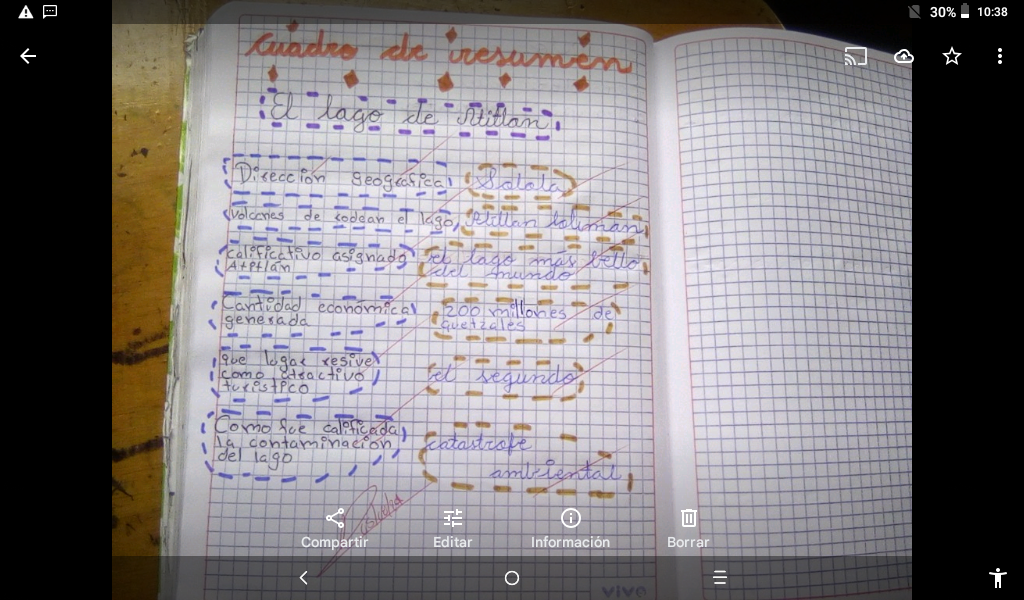 30% 10:38
Cuadro de resumen
El lago de Atitlan
Direccion geografica Solola
Volcanes de rodean el lago, Atitlan toliman
calificativo asignado el lago más bello
Atitlán del mundo
Cantidad económica 200 millones de
generada quetzales
que lugar resive
como atractivo el segundo
turistico
Como fue calificada catastrofe
la contaminación
del lago ambiental
Compartir Editar Información Borrar
vivo